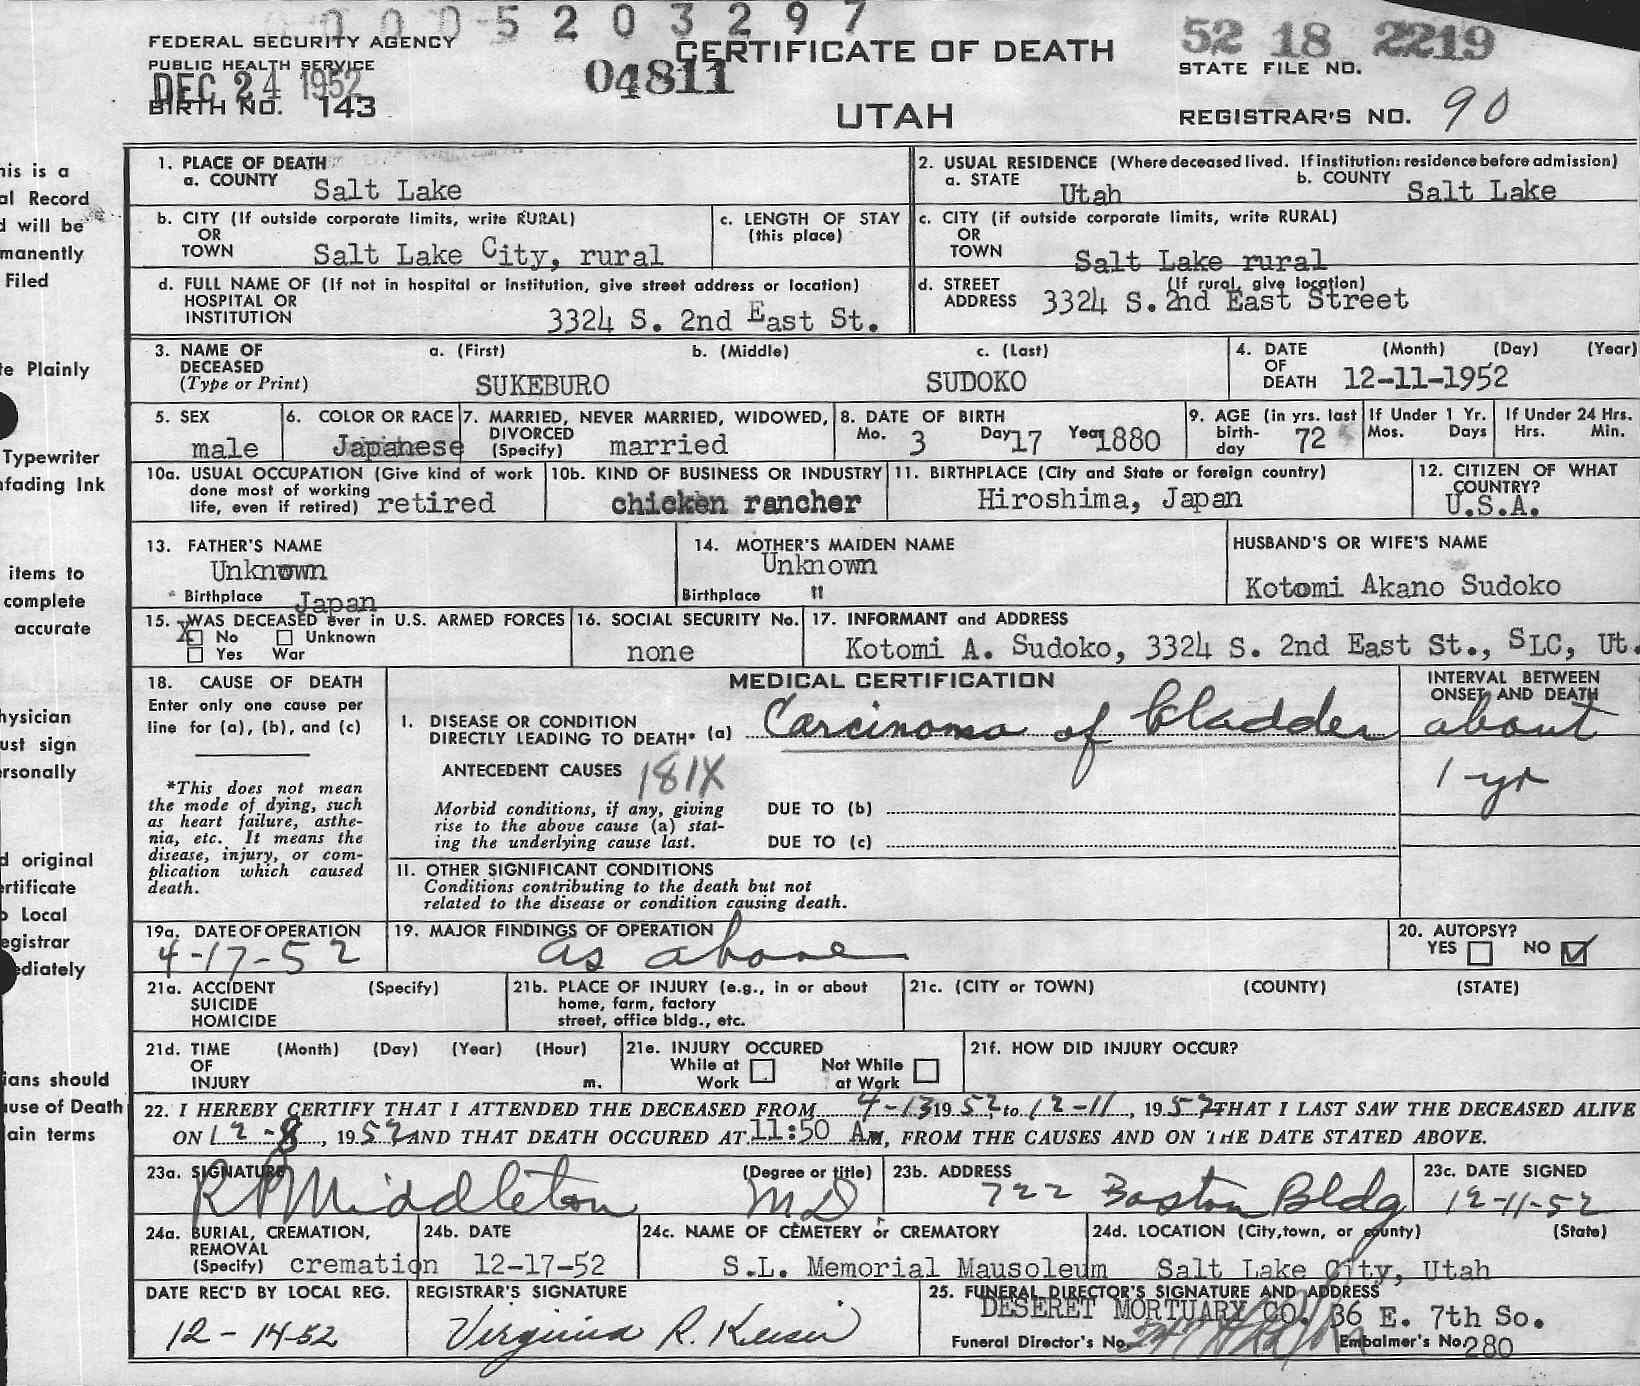 0005203297
FEDERAL SECURITY AGENCY
PUBLIC HEALTH SERVICE
DEC 24 1952
BIRTH NO. 143
04811
CERTIFICATE OF DEATH
UTAH
52 18 2219
STATE FILE NO.
REGISTRAR'S NO. 90
his is a
al Record
d will be
manently
Filed
te Plainly
Typewriter
nfading Ink
items to
complete
accurate
hysician
ust sign
ersonally
d original
ertificate
o Local
egistrar
ediately
ians should
use of Death
ain terms
1. PLACE OF DEATH
a. COUNTY Salt Lake
2. USUAL RESIDENCE (Where deceased lived. If institution: residence before admission)
a. STATE Utah b. COUNTY Salt Lake
b. CITY (If outside corporate limits, write RURAL)
OR
TOWN Salt Lake City, rural
c. LENGTH OF STAY
(this place)
c. CITY (if outside corporate limits, write RURAL)
OR
TOWN Salt Lake rural
d. FULL NAME OF (If not in hospital or institution, give street address or location)
HOSPITAL OR
INSTITUTION 3324 S. 2nd East St.
d. STREET (If rural, give location)
ADDRESS 3324 S. 2nd East Street
3. NAME OF DECEASED a. (First) b. (Middle) c. (Last)
(Type or Print) SUKEBURO SUDOKO
4. DATE OF DEATH (Month) (Day) (Year)
12-11-1952
5. SEX
male
6. COLOR OR RACE
Japanese
7. MARRIED, NEVER MARRIED, WIDOWED,
DIVORCED
(Specify) married
8. DATE OF BIRTH
Mo. 3 Day 17 Year 1880
9. AGE (in yrs. last
birth-
day 72
If Under 1 Yr.
Mos. Days
If Under 24 Hrs.
Hrs. Min.
10a. USUAL OCCUPATION (Give kind of work
done most of working
life, even if retired) retired
10b. KIND OF BUSINESS OR INDUSTRY
chicken rancher
11. BIRTHPLACE (City and State or foreign country)
Hiroshima, Japan
12. CITIZEN OF WHAT
COUNTRY?
U.S.A.
13. FATHER'S NAME
Unknown
Birthplace Japan
14. MOTHER'S MAIDEN NAME
Unknown
Birthplace "
HUSBAND'S OR WIFE'S NAME
Kotomi Akano Sudoko
15. WAS DECEASED ever in U.S. ARMED FORCES
X No Unknown
Yes War
16. SOCIAL SECURITY No.
none
17. INFORMANT and ADDRESS
Kotomi A. Sudoko, 3324 S. 2nd East St., SLC, Ut.
18. CAUSE OF DEATH
Enter only one cause per
line for (a), (b), and (c)
*This does not mean
the mode of dying, such
as heart failure, asthe-
nia, etc. It means the
disease, injury, or com-
plication which caused
death.
MEDICAL CERTIFICATION
INTERVAL BETWEEN
ONSET AND DEATH
I. DISEASE OR CONDITION
DIRECTLY LEADING TO DEATH* (a) Carcinoma of bladder about
1 yr
ANTECEDENT CAUSES 181X
Morbid conditions, if any, giving
rise to the above cause (a) stat-
ing the underlying cause last.
DUE TO (b)
DUE TO (c)
II. OTHER SIGNIFICANT CONDITIONS
Conditions contributing to the death but not
related to the disease or condition causing death.
19a. DATE OF OPERATION
4-17-52
19. MAJOR FINDINGS OF OPERATION
as above
20. AUTOPSY?
YES NO
21a. ACCIDENT (Specify)
SUICIDE
HOMICIDE
21b. PLACE OF INJURY (e.g., in or about
home, farm, factory
street, office bldg., etc.
21c. (CITY or TOWN) (COUNTY) (STATE)
21d. TIME (Month) (Day) (Year) (Hour)
OF
INJURY m.
21e. INJURY OCCURED
While at Not While
Work at Work
21f. HOW DID INJURY OCCUR?
22. I HEREBY CERTIFY THAT I ATTENDED THE DECEASED FROM 4-13 1952 to 12-11, 1952 THAT I LAST SAW THE DECEASED ALIVE
ON 12-8, 1952 AND THAT DEATH OCCURED AT 11:50 AM, FROM THE CAUSES AND ON THE DATE STATED ABOVE.
23a. SIGNATURE (Degree or title)
R P Middleton MD
23b. ADDRESS
722 Boston Bldg
23c. DATE SIGNED
12-11-52
24a. BURIAL, CREMATION,
REMOVAL
(Specify) cremation
24b. DATE
12-17-52
24c. NAME OF CEMETERY or CREMATORY
S.L. Memorial Mausoleum
24d. LOCATION (City, town, or county) (State)
Salt Lake City, Utah
DATE REC'D BY LOCAL REG.
12-14-52
REGISTRAR'S SIGNATURE
Virginia R.
25. FUNERAL DIRECTOR'S SIGNATURE AND ADDRESS
DESERET MORTUARY CO. 36 E. 7th So.
Funeral Director's No. Embalmer's No. 280